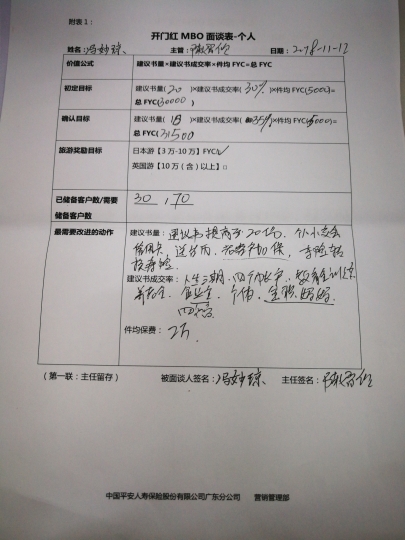 附表1：
开门红 MBO 面谈表-个人
姓名：冯妙琼 主管：陈雪仪 日期：2018-11-12
价值公式 建议书量×建议书成交率×件均 FYC=总 FYC
初定目标 建议书量( 20 )×建议书成交率( 30% )×件均 FYC(5000)=
总 FYC(30000 )
确认目标 建议书量( 18 )×建议书成交率( 35% )×件均 FYC(5000)=
总 FYC( 31500
旅游奖励目标 日本游【3 万-10 万】FYC√
英国游【10 万（含）以上】□
已储备客户数/需要 30 , 70
储备客户数
最需要改进的动作 建议书量：建议书提高于20份、个人小交会
信用卡、送台历、
建议书成交率：人生三期、四个账户、
养老金、
四
件均保费：2万
（第一联：主任留存） 被面谈人签名：冯妙琼 主任签名：陈雪仪
中国平安人寿保险股份有限公司广东分公司 营销管理部